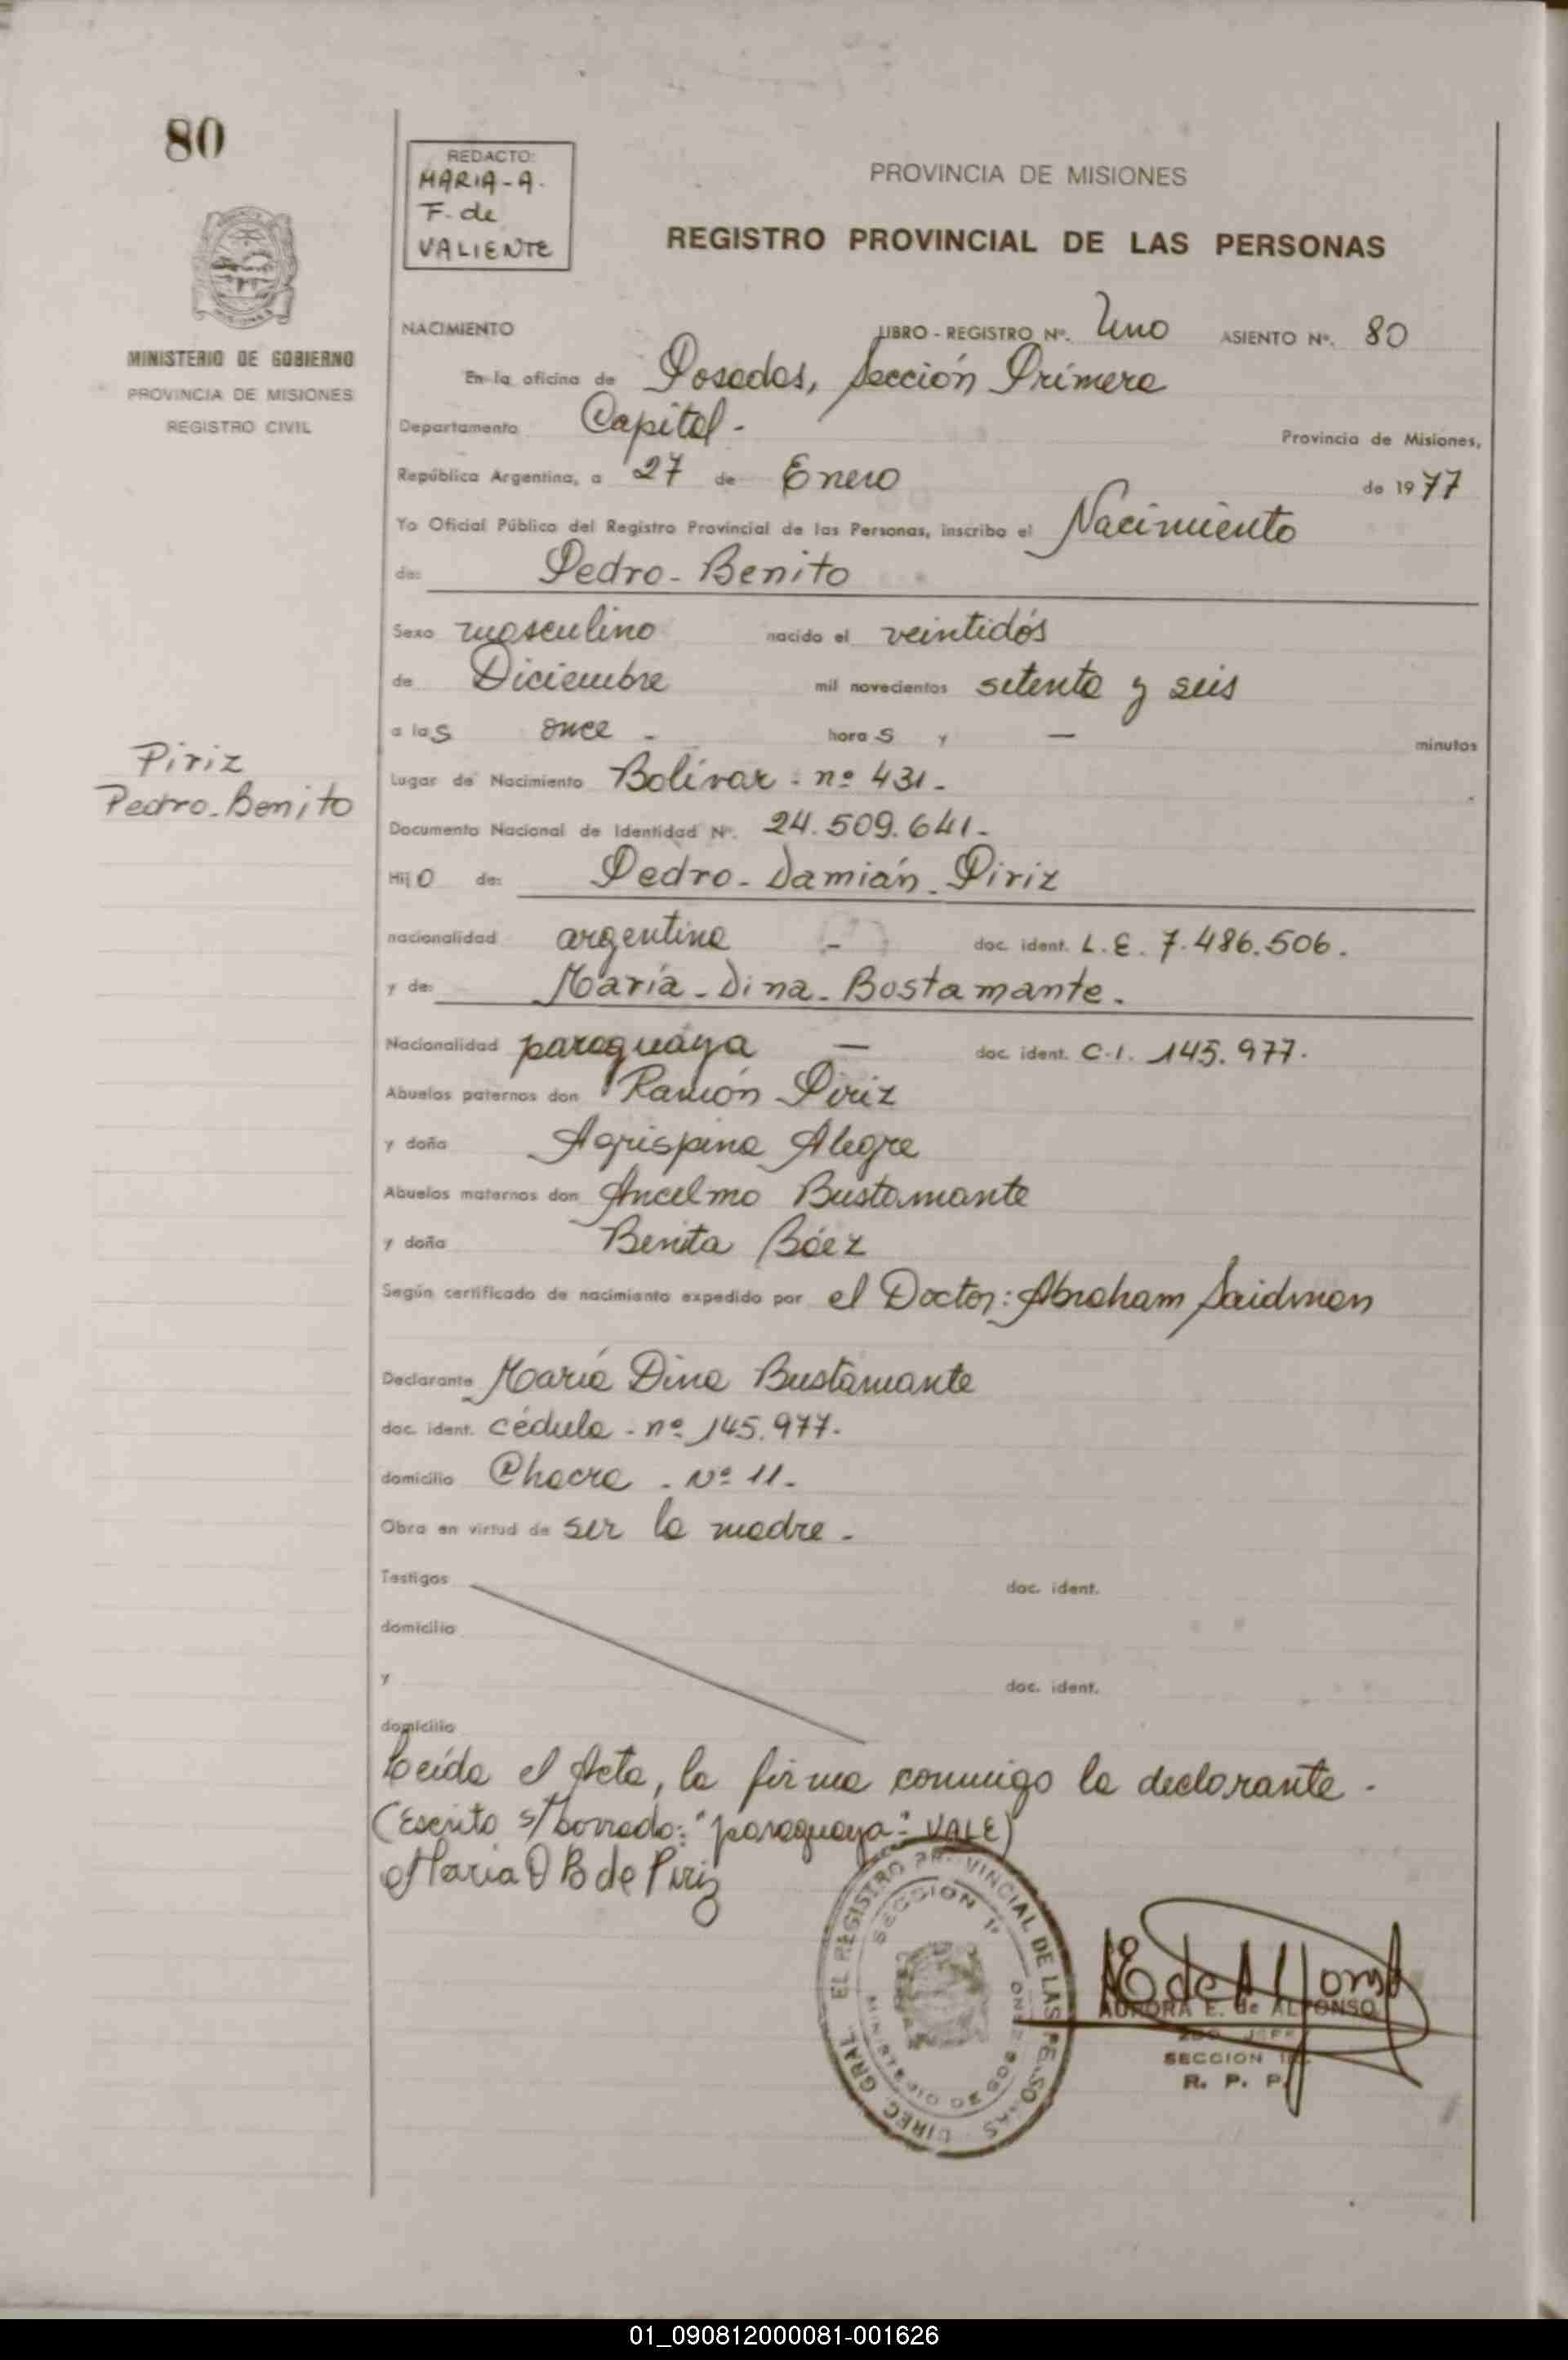 80
REDACTO:
MARIA-A.
F. de
VALIENTE
PROVINCIA DE MISIONES
REGISTRO PROVINCIAL DE LAS PERSONAS
MINISTERIO DE GOBIERNO
PROVINCIA DE MISIONES
REGISTRO CIVIL
NACIMIENTO LIBRO - REGISTRO Nº. Uno ASIENTO Nº. 80
En la oficina de Posadas, Sección Primera
Departamento Capital.- Provincia de Misiones,
República Argentina, a 27 de Enero de 1977
Yo Oficial Público del Registro Provincial de las Personas, inscribo el Nacimiento
de: Pedro-Benito
Sexo masculino nacido el veintidós
de Diciembre mil novecientos setenta y seis
a las once - horas y — minutos
Piriz
Pedro-Benito
Lugar de Nacimiento Bolívar - nº 431.-
Documento Nacional de Identidad Nº. 24.509.641.-
Hijo de: Pedro-Damián-Piriz
nacionalidad argentina - doc. ident. L.E. 7.486.506.
y de: María-Dina-Bostamante.
Nacionalidad paraguaya — doc. ident. C.I. 145.977.
Abuelos paternos don Ramón Piriz
y doña Agrispina Alegre
Abuelos maternos don Ancelmo Bustamante
y doña Benita Báez
Según certificado de nacimiento expedido por el Doctor: Abraham Saidman
Declarante María Dina Bustamante
doc. ident. cédula - nº 145.977.
domicilio Chacra - Nº 11.-
Obra en virtud de ser la madre.-
Testigos doc. ident.
domicilio
y doc. ident.
domicilio
Leída el Acta, la firma conmigo la declarante.-
(Escrito s/borrado: "paraguaya": VALE)
Maria D B de Piriz
DIREC. GRAL. EL REGISTRO PROVINCIAL DE LAS PERSONAS
SECCION 1º
MINISTERIO DE GOBIERNO
AURORA E. de ALFONSO
2DO JEFE
SECCION 1ª
R. P. P.
01_090812000081-001626